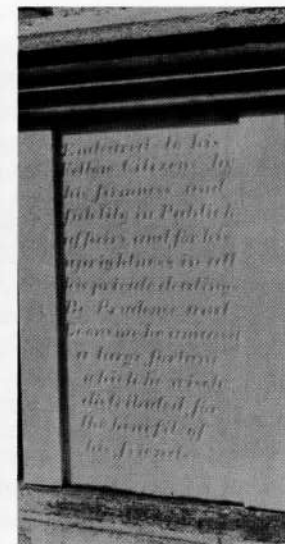 Endeared to his
Fellow Citizens by
his firmness and
fidelity in Publick
affairs and for his
uprightness in all
his private dealings
By Prudence and
Economy he amassed
a large fortune
which he wisely
distributed for
the benefit of
his friends